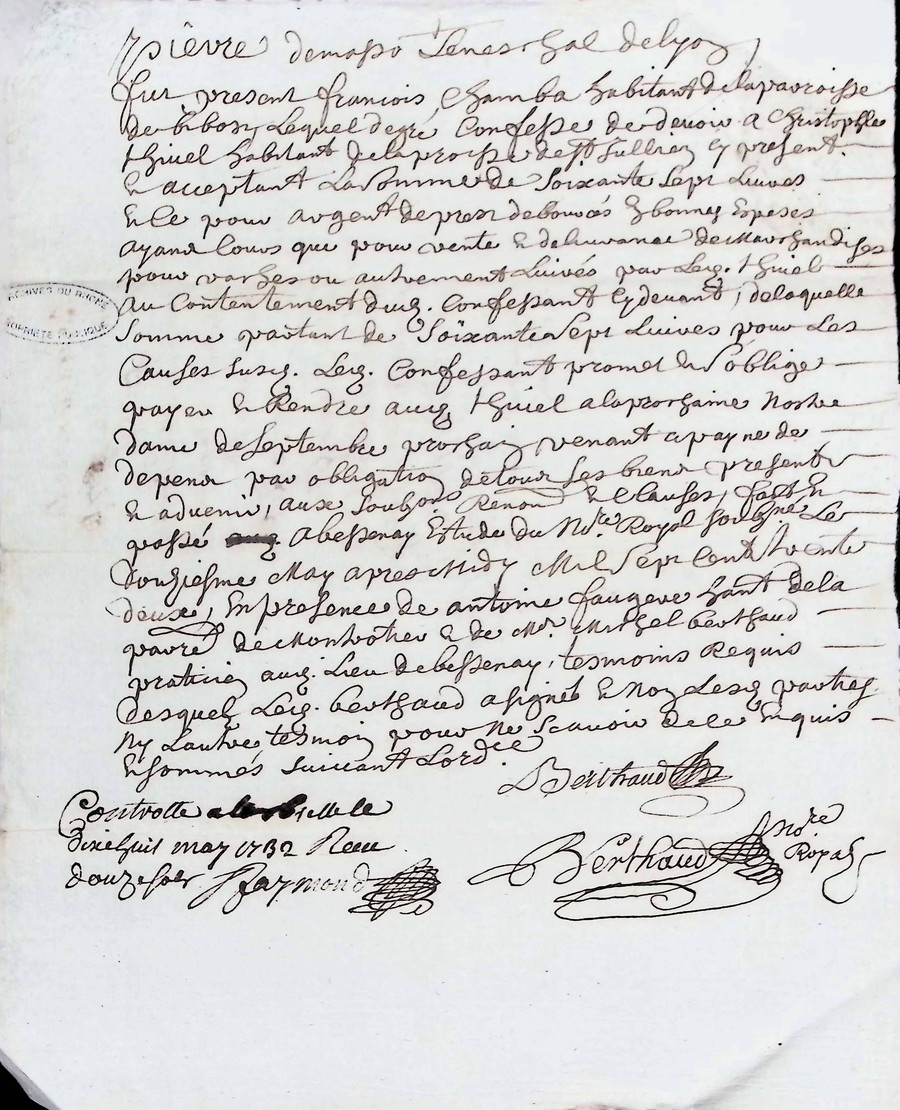 pierre demasso Seneschal delyon
fut present francois Chamba habitant delaparroisse
de bibost, Lequel degré Confesse de devoir a Christophle
thivel habitant delaproisse de St Jullien Cy present
Et acceptant La Somme de Soixante Sept Livres
Et Ce pour argent depret debourcés En bonnes Espeses
ayant Cours que pour vente Et deluvrance deMarchandises
pour vaches ou autrement Livrés par Leq. thivel
au Contentement duq. Confessant Cy devant, delaquelle
Somme partant de Soixante Sept Livres pour Les
Causes susq. Leq. Confessant promet Et s'oblige
payer Et Rendre auq. thivel alaprochaine Nostre
dame deSeptembre prochain venant apayne de
depens par obligation detous Ses biens presents
Et advenir, aux Soubzons Renons Et Clauses, fait Et
passé abessenay Estude du Nre Royal soubsne Le
Douziesme May apres Midy Mil Sept Cent trente
deux, En presence de antoine faugere hant dela
parre deMontrotier Et de Mr Michel berthaud
praticien auq. Lieu debessenay, tesmoins Requis
desquels Leq. berthaud asigné Et Non Lesq. parties
Ny Lautre tesmoin pour Ne Scavoir dece Enquis
Et sommés suivant Lordce
Berthaud
Controllé
dixehuit may 1732 Reçu
douze sols Raymond
Berthaud nore
Royal
ARCHIVES DU RHONE
PROPRIÉTÉ PUBLIQUE